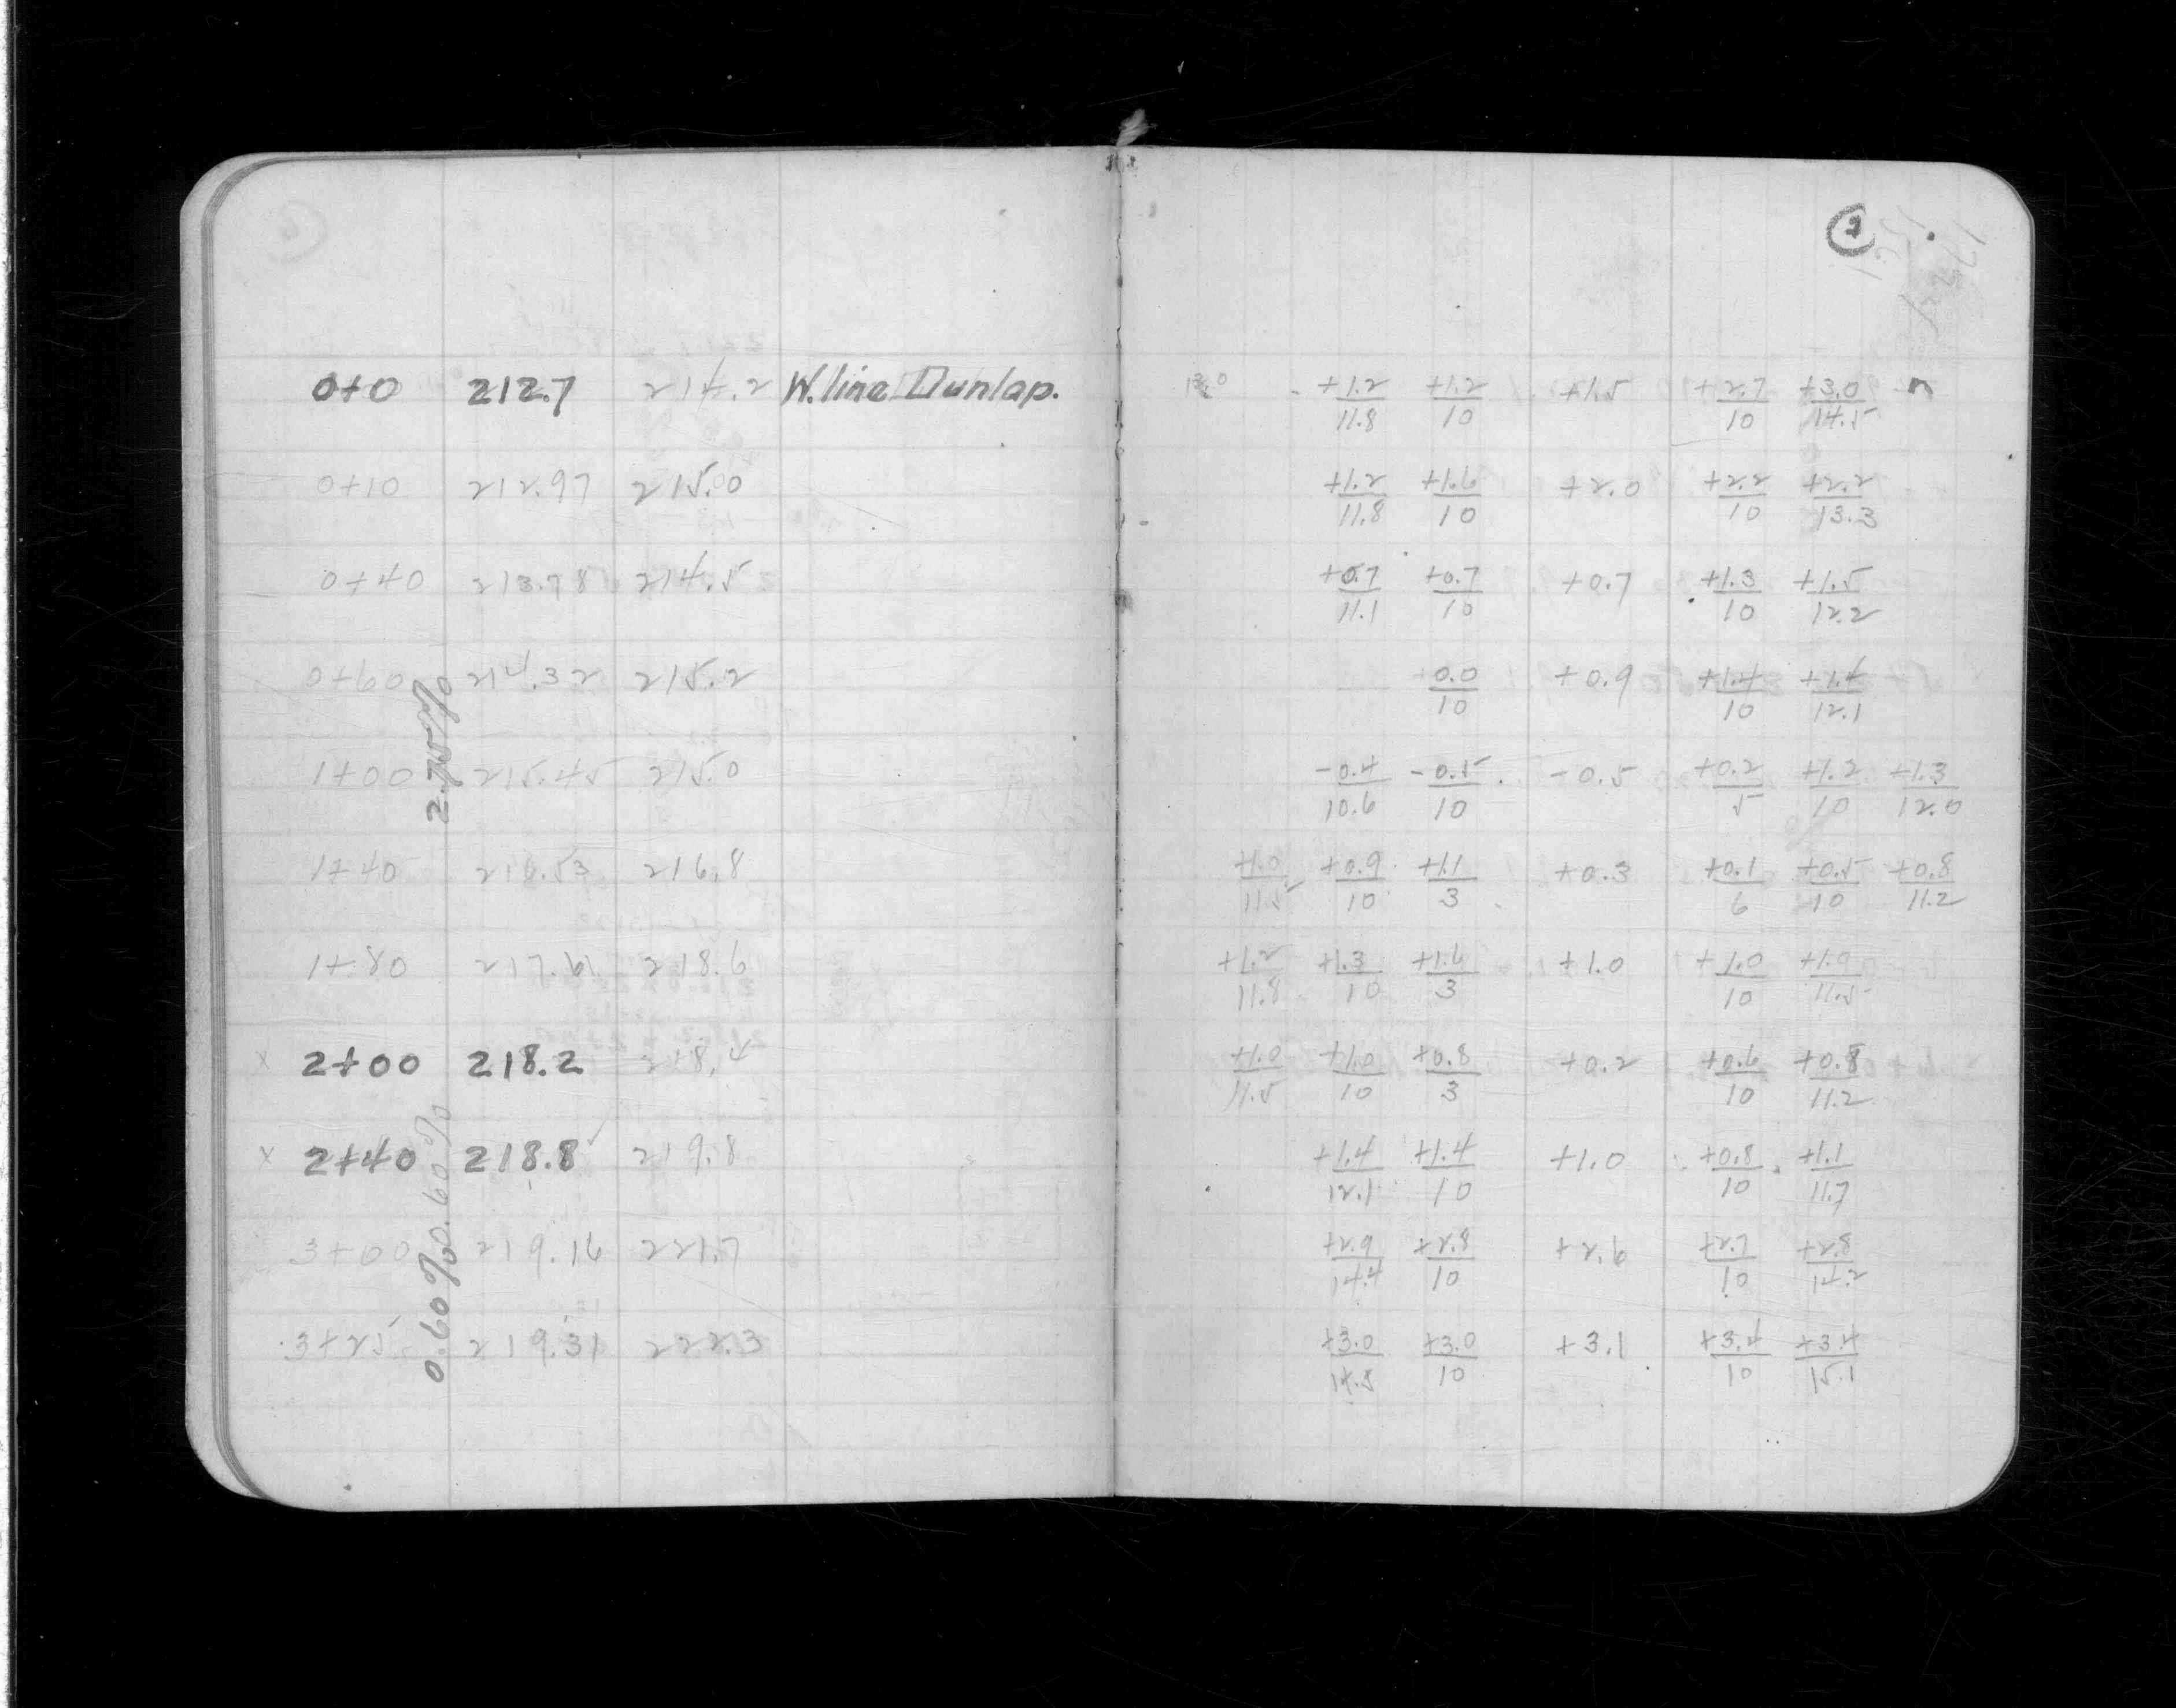 2
0+0 212.7 214.2 W. line Dunlap. +1.2/11.8 +1.2/10 +1.5 +2.7/10 +3.0/14.5
0+10 212.97 215.00 +1.2/11.8 +1.6/10 +2.0 +2.2/10 +2.2/13.3
0+40 213.78 214.5 +0.7/11.1 +0.7/10 +0.7 +1.3/10 +1.5/12.2
0+60 214.32 215.2 0.0/10 +0.9 +1.4/10 +1.4/12.1
2.70%
1+00 215.45 215.0 -0.4/10.6 -0.5/10 -0.5 +0.2/5 +1.2/10 +1.3/12.0
1+40 216.53 216.8 +1.0/11.5 +0.9/10 +1.1/3 +0.3 +0.1/6 +0.5/10 +0.8/11.2
1+80 217.61 218.6 +1.2/11.8 +1.3/10 +1.6/3 +1.0 +1.0/10 +1.0/11.5
x 2+00 218.2 218.4 +1.0/11.5 +1.0/10 +0.8/3 +0.2 +0.6/10 +0.8/11.2
x 2+40 218.8 219.8 +1.4/12.1 +1.4/10 +1.0 +0.8/10 +1.1/11.7
0.60%
3+00 219.16 221.7 +2.9/14.4 +2.8/10 +2.6 +2.7/10 +2.8/14.2
0.60%
3+25 219.31 222.3 +3.0/14.5 +3.0/10 +3.1 +3.4/10 +3.4/15.1